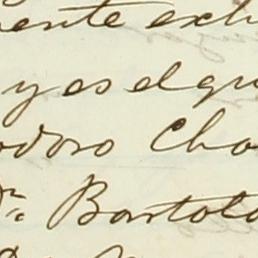 ente exh
y es el que
odoro Cha
Dn. Bartolo